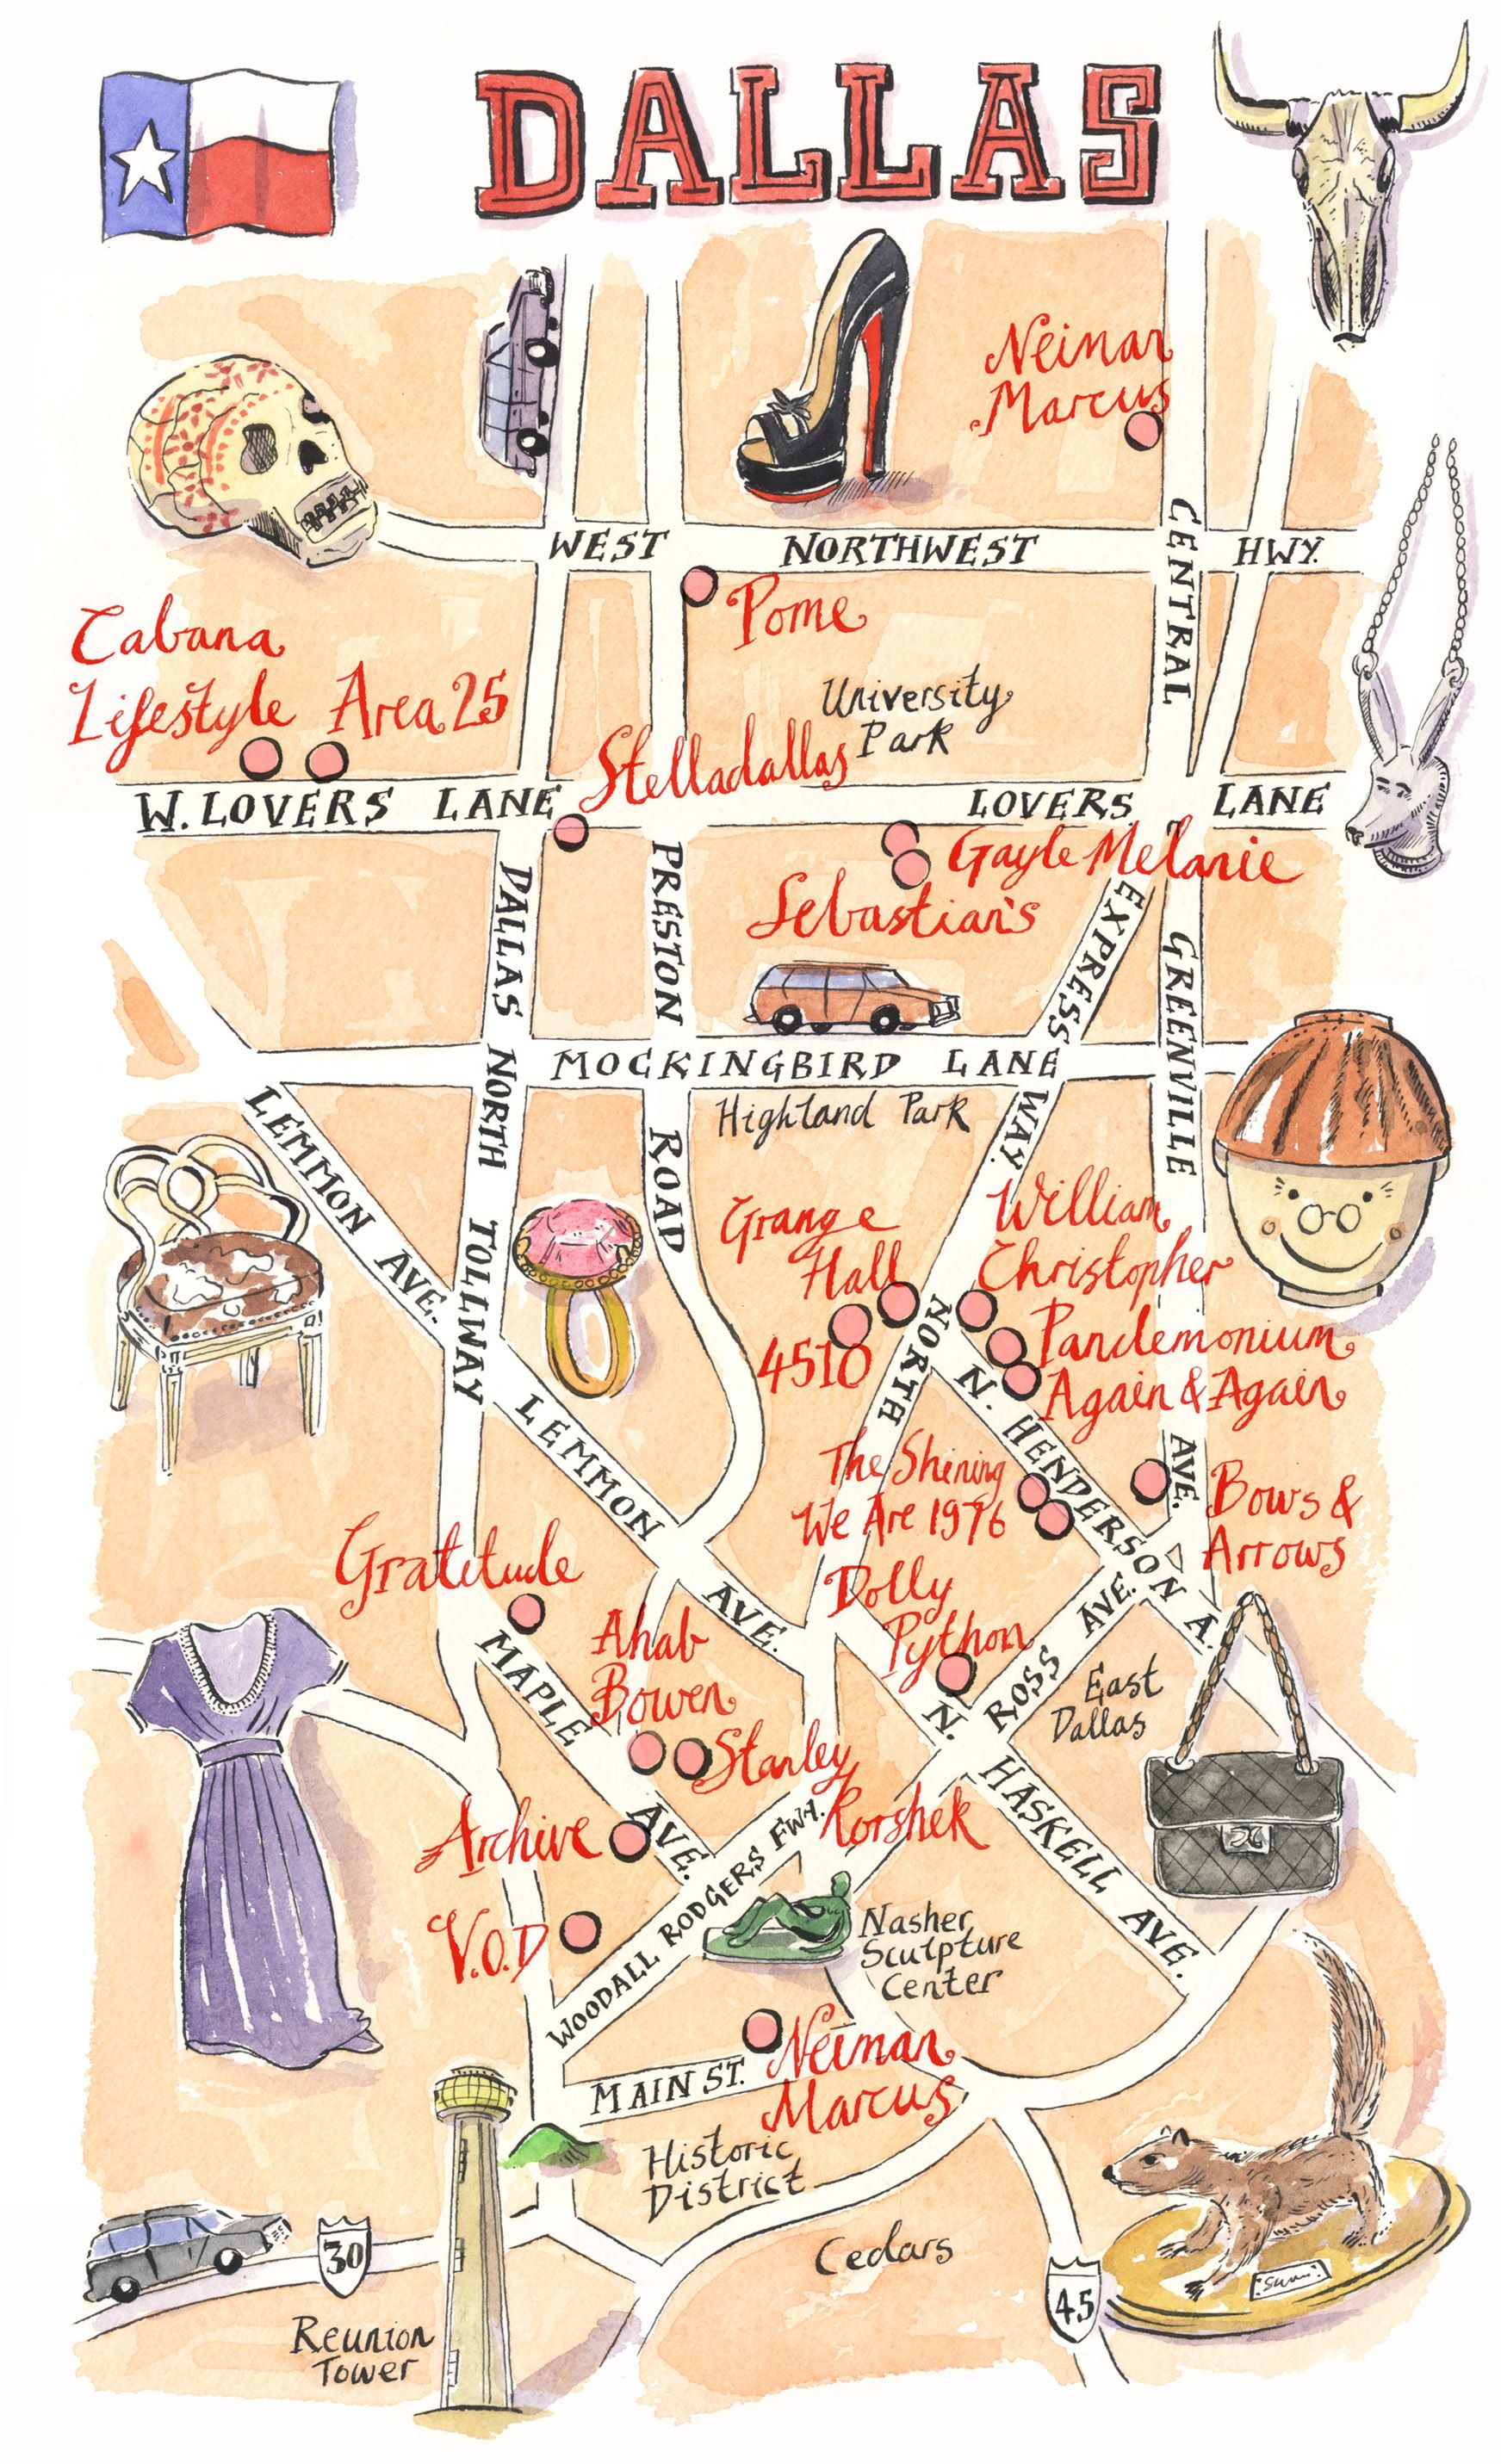 DALLAS
Neiman
Marcus
WEST NORTHWEST HWY.
CENTRAL
Pome
Cabana
Lifestyle Area 25
University
Park
Stelladallas
W. LOVERS LANE
LOVERS LANE
Gayle Melanie
Sebastian's
DALLAS NORTH TOLLWAY
PRESTON ROAD
EXPRESS WAY.
GREENVILLE AVE.
MOCKINGBIRD LANE
Highland Park
LEMMON AVE.
Grange
Hall
4510
William
Christopher
Pandemonium
Again & Again
NORTH
N. HENDERSON A.
LEMMON AVE.
The Shining
We Are 1976
Bows &
Arrows
Gratitude
Dolly
Python
Ahab
Bowen
MAPLE AVE.
N. HASKELL AVE.
ROSS AVE.
East
Dallas
Stanley
Korshek
Archive
V.O.D
WOODALL RODGERS FWY.
Nasher
Sculpture
Center
Neiman
Marcus
MAIN ST.
Historic
District
Cedars
30
45
Reunion
Tower